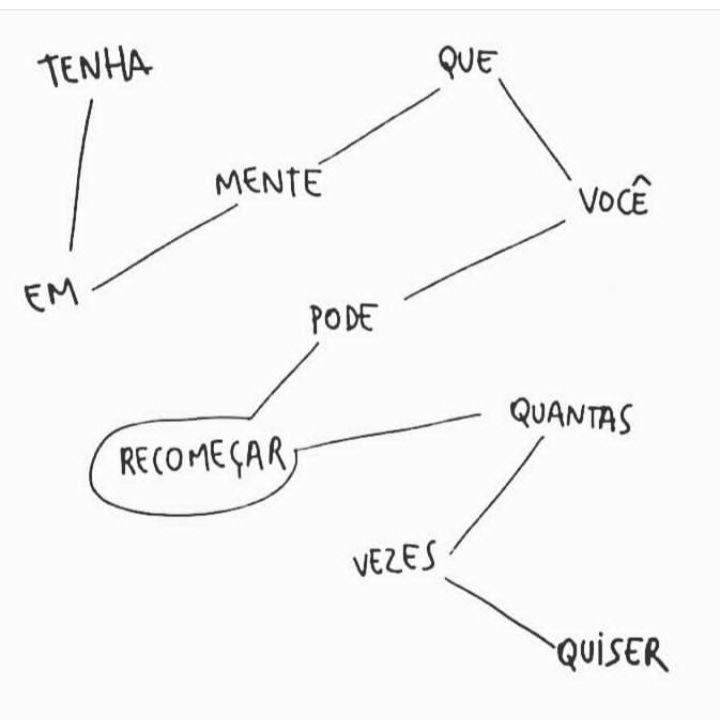 TENHA
EM
MENTE
QUE
VOCÊ
PODE
RECOMEÇAR
QUANTAS
VEZES
QUISER